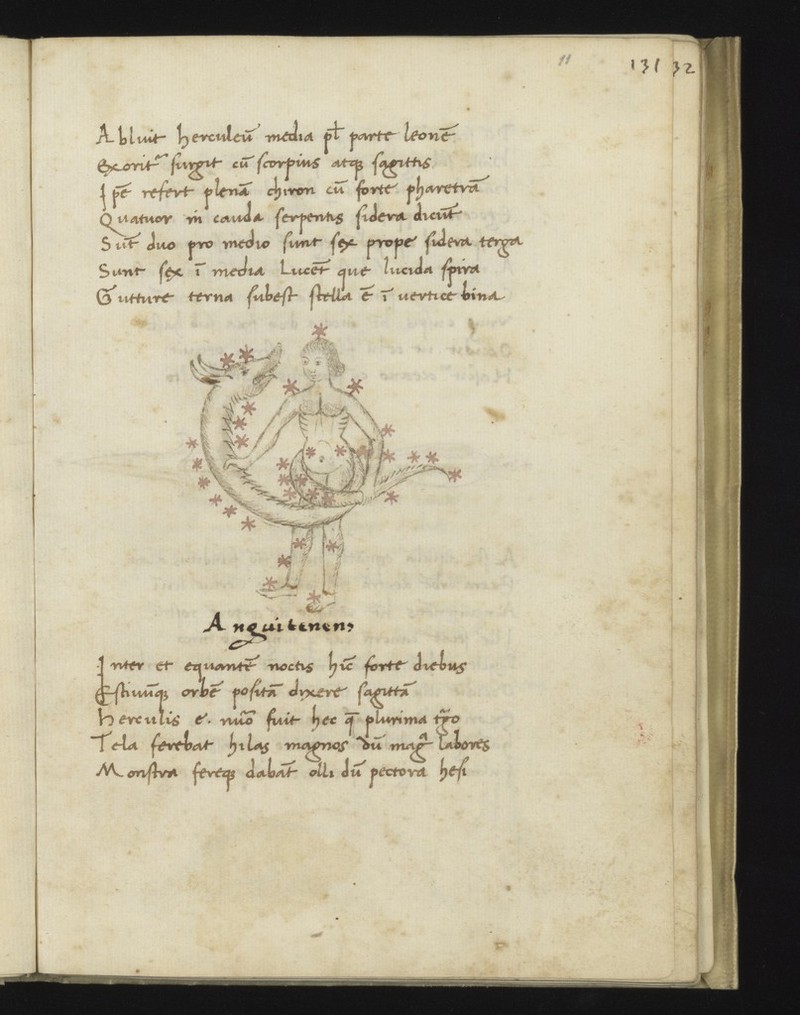 11
131 32
Abluit herculeū media pl̄ parte leonē
Exoritᷣ surgit cū scorpius atqꝫ sagittis
Ipē refert plenā chiron cū forte pharetrā
Quatuor in cauda serpentis sidera dicūt
Sūt duo pro medio sunt sex prope sidera terga
Sunt sex ī media Lucēt que lucida spira
Gutture terna subest stella ē ī vertice bina
Anguitenens
Inter et equantē noctis hīc forte diebus
Estiuūqꝫ orbē positā dixere sagittā
Herculis e. fuit hec q̄ plurima
Tela ferebat hilas magnos dū labores
Monstra fereqꝫ dabāt olli dū pectora hesi